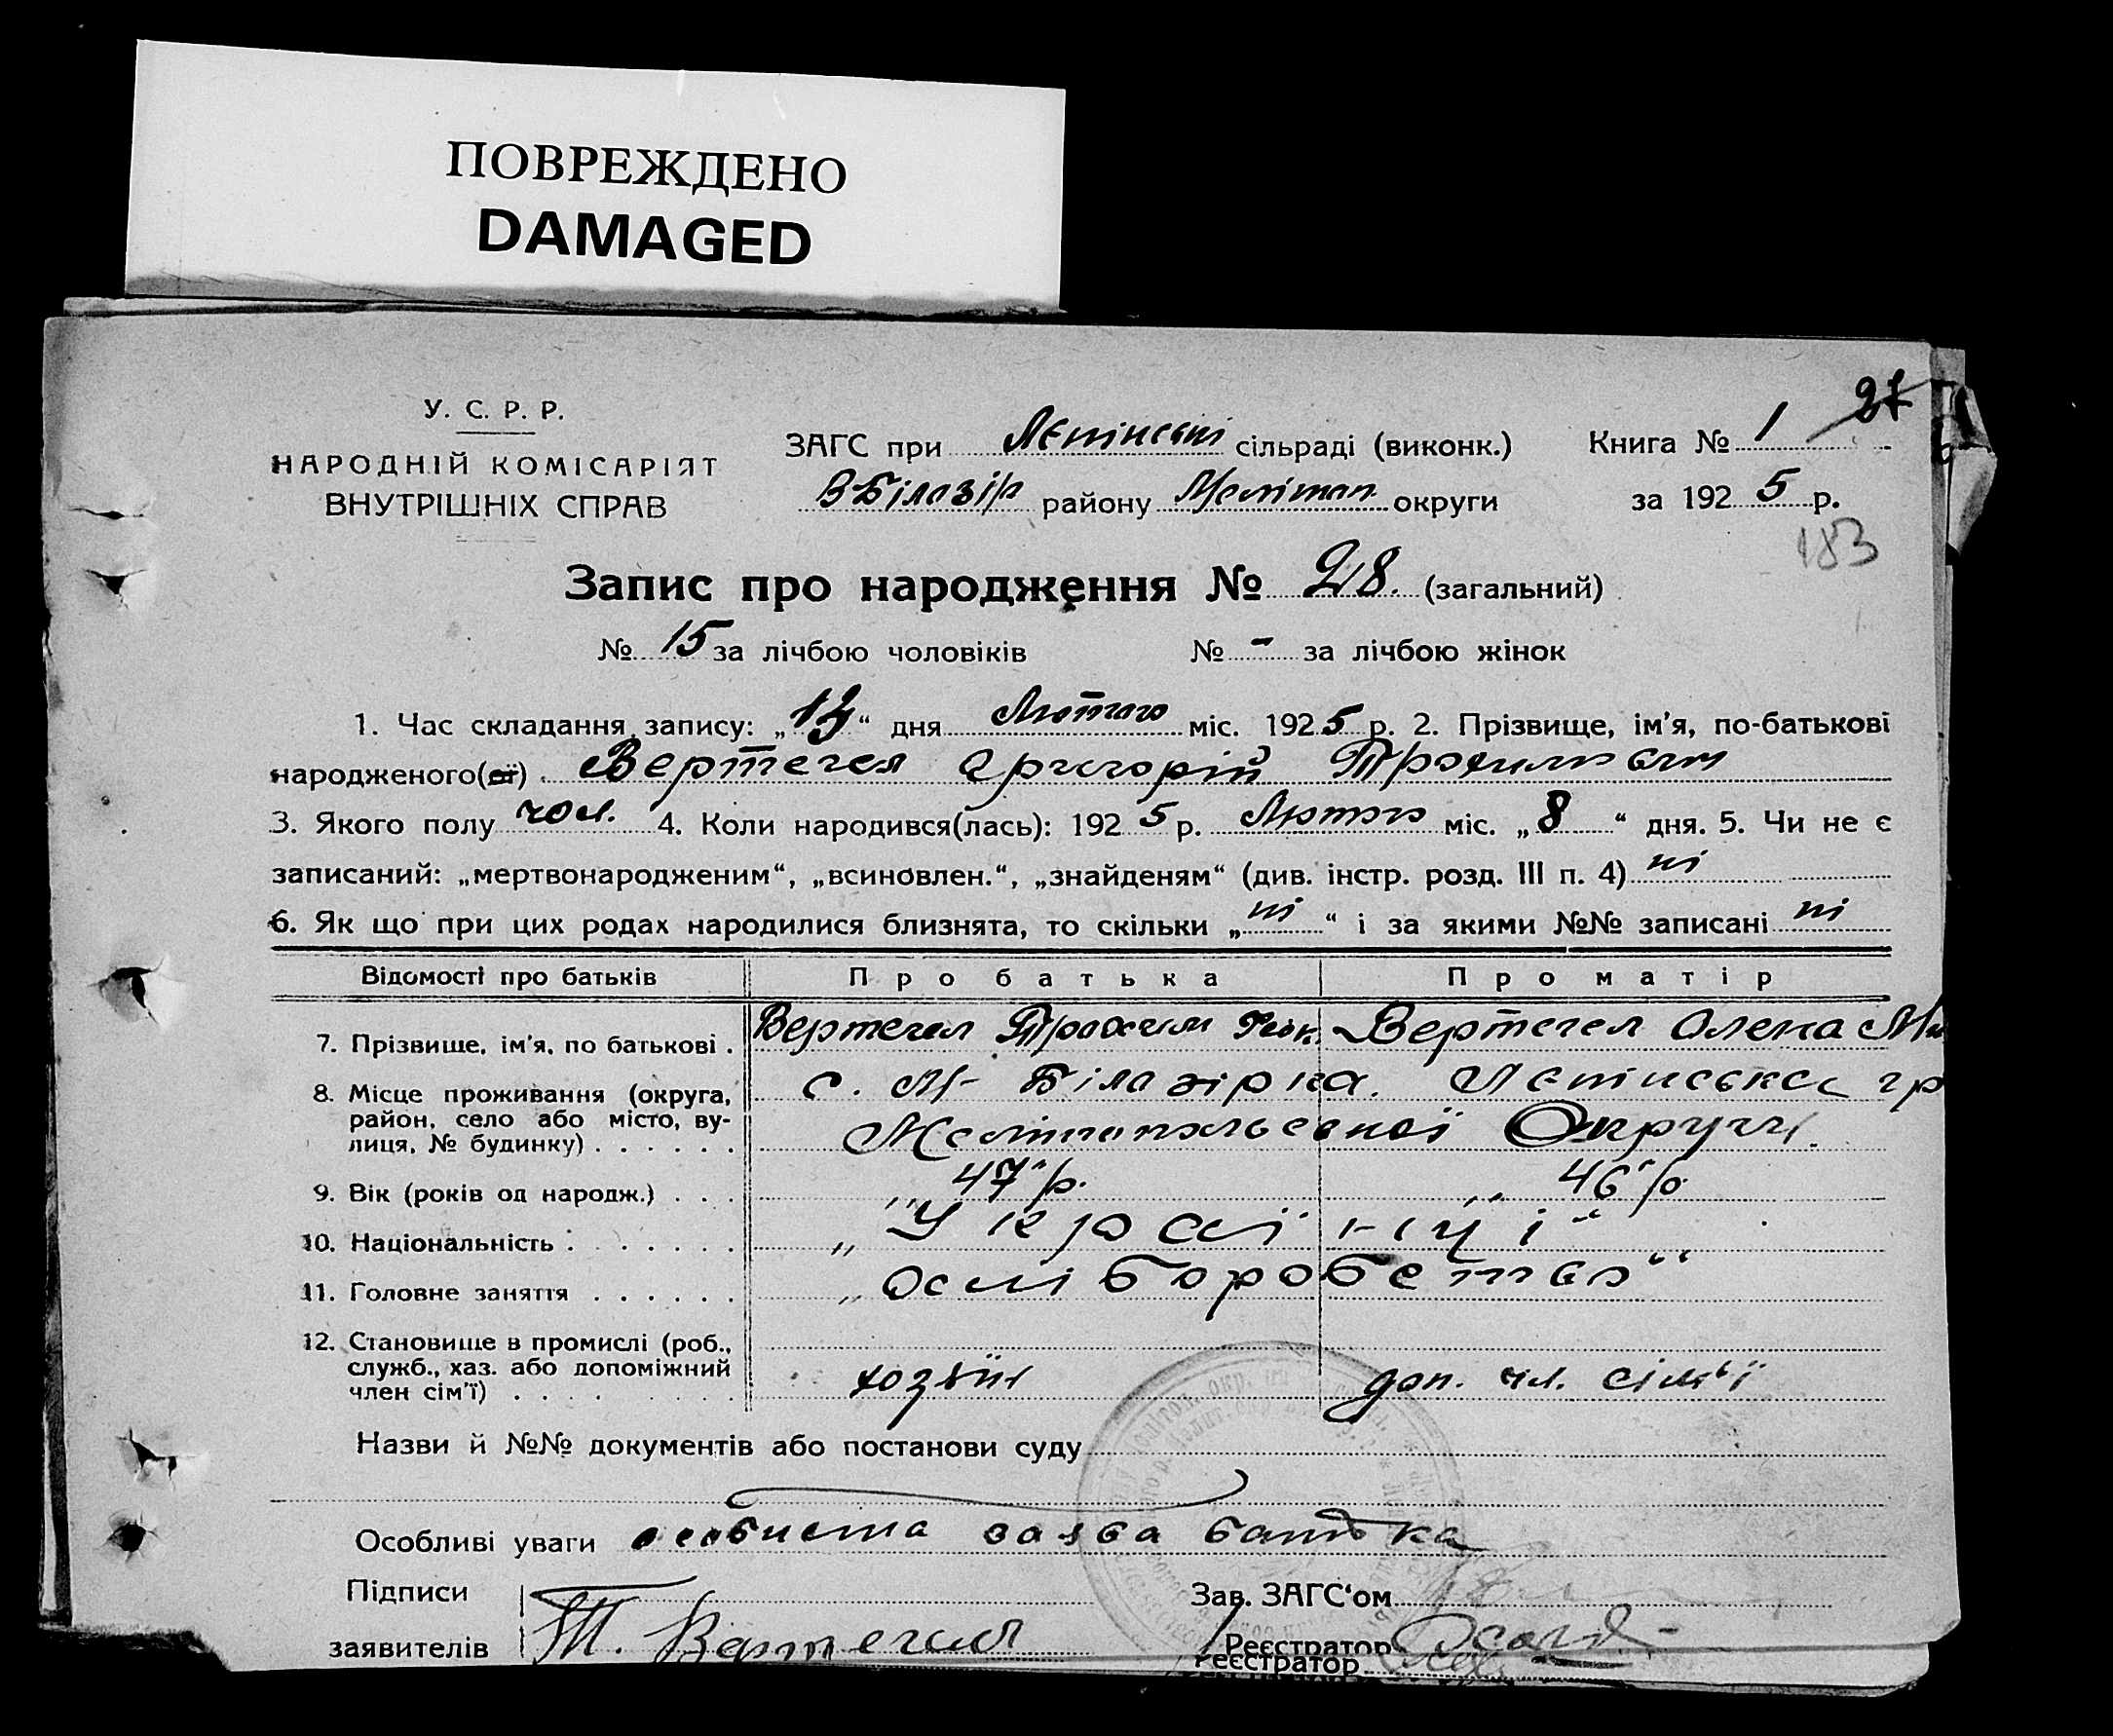 ПОВРЕЖДЕНО
DAMAGED
27
У. С. Р. Р.
НАРОДНІЙ КОМІСАРІЯТ
ВНУТРІШНІХ СПРАВ
ЗАГС при сільраді (виконк.) Книга № 1
В Білазір району Меліто­п. округи за 1925 р.
183
Запис про народження № 28. (загальний)
№ 15 за лічбою чоловіків № - за лічбою жінок
1. Час складання запису: „ “ дня Лютого міс. 1925 р. 2. Прізвище, ім’я, по-батькові
народженого(ої) Вертегел Григорій Трохимович
3. Якого полу чол. 4. Коли народився(лась): 1925 р. Лютого міс. „8“ дня. 5. Чи не є
записаний: „мертвонародженим“, „всиновлен.“, „знайденям“ (див. інстр. розд. III п. 4) ні
6. Як що при цих родах народилися близнята, то скільки „ні“ і за якими №№ записані ні
Відомості про батьків Про батька Про матір
7. Прізвище, ім’я, по батькові . Вертегел Трохим Вертегел Олена
8. Місце проживання (округа, с. М-Білазірка.
район, село або місто, ву-
лиця, № будинку) . . . . . . Мелітопольської Округи.
9. Вік (років од народж.) . . . „47“ р. „46“ р.
10. Національність . . . . . . . „Українці“
11. Головне заняття . . . . . . „хліборобство“
12. Становище в промислі (роб.,
служб., хаз. або допоміжний
член сім’ї) . . . . . . . . хозяїн доп. чл. сімʼї
Назви й №№ документів або постанови суду
Особливі уваги особиста заява батька
Підписи Зав. ЗАГС‘ом
заявителів Т. Вертегел Реєстратор
Реєстратор